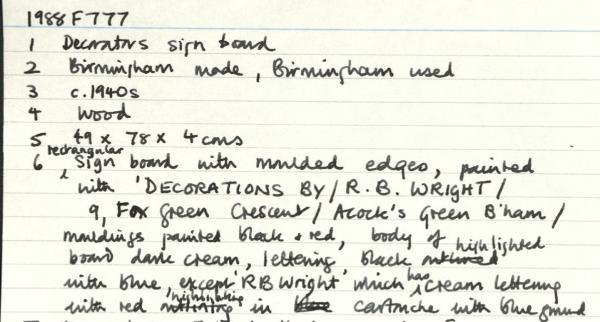 1988 F777
1 Decorators sign board
2 Birmingham made, Birmingham used
3 c.1940s
4 Wood
5 49 x 78 x 4 cms
6 rectangular Sign board with moulded edges, painted
with 'DECORATIONS BY / R.B. WRIGHT /
9, Fox Green Crescent / Acock's Green B'ham /
mouldings painted black & red, body of
board dark cream, lettering black highlighted
with blue, except 'RB Wright' which has cream lettering
with red highlighting in cartouche with blue ground